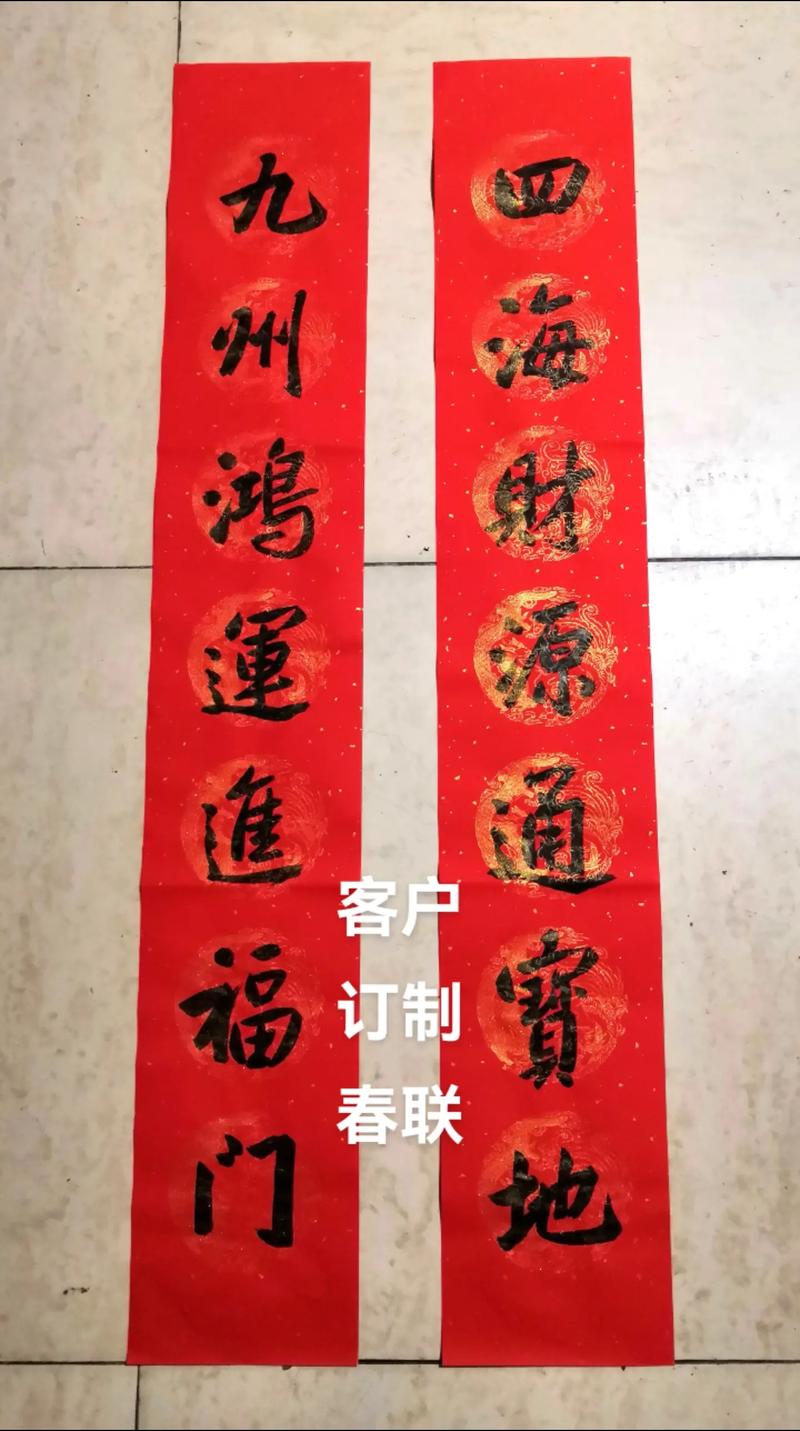 四海財源通寶地
九州鴻運進福门
客户
订制
春联